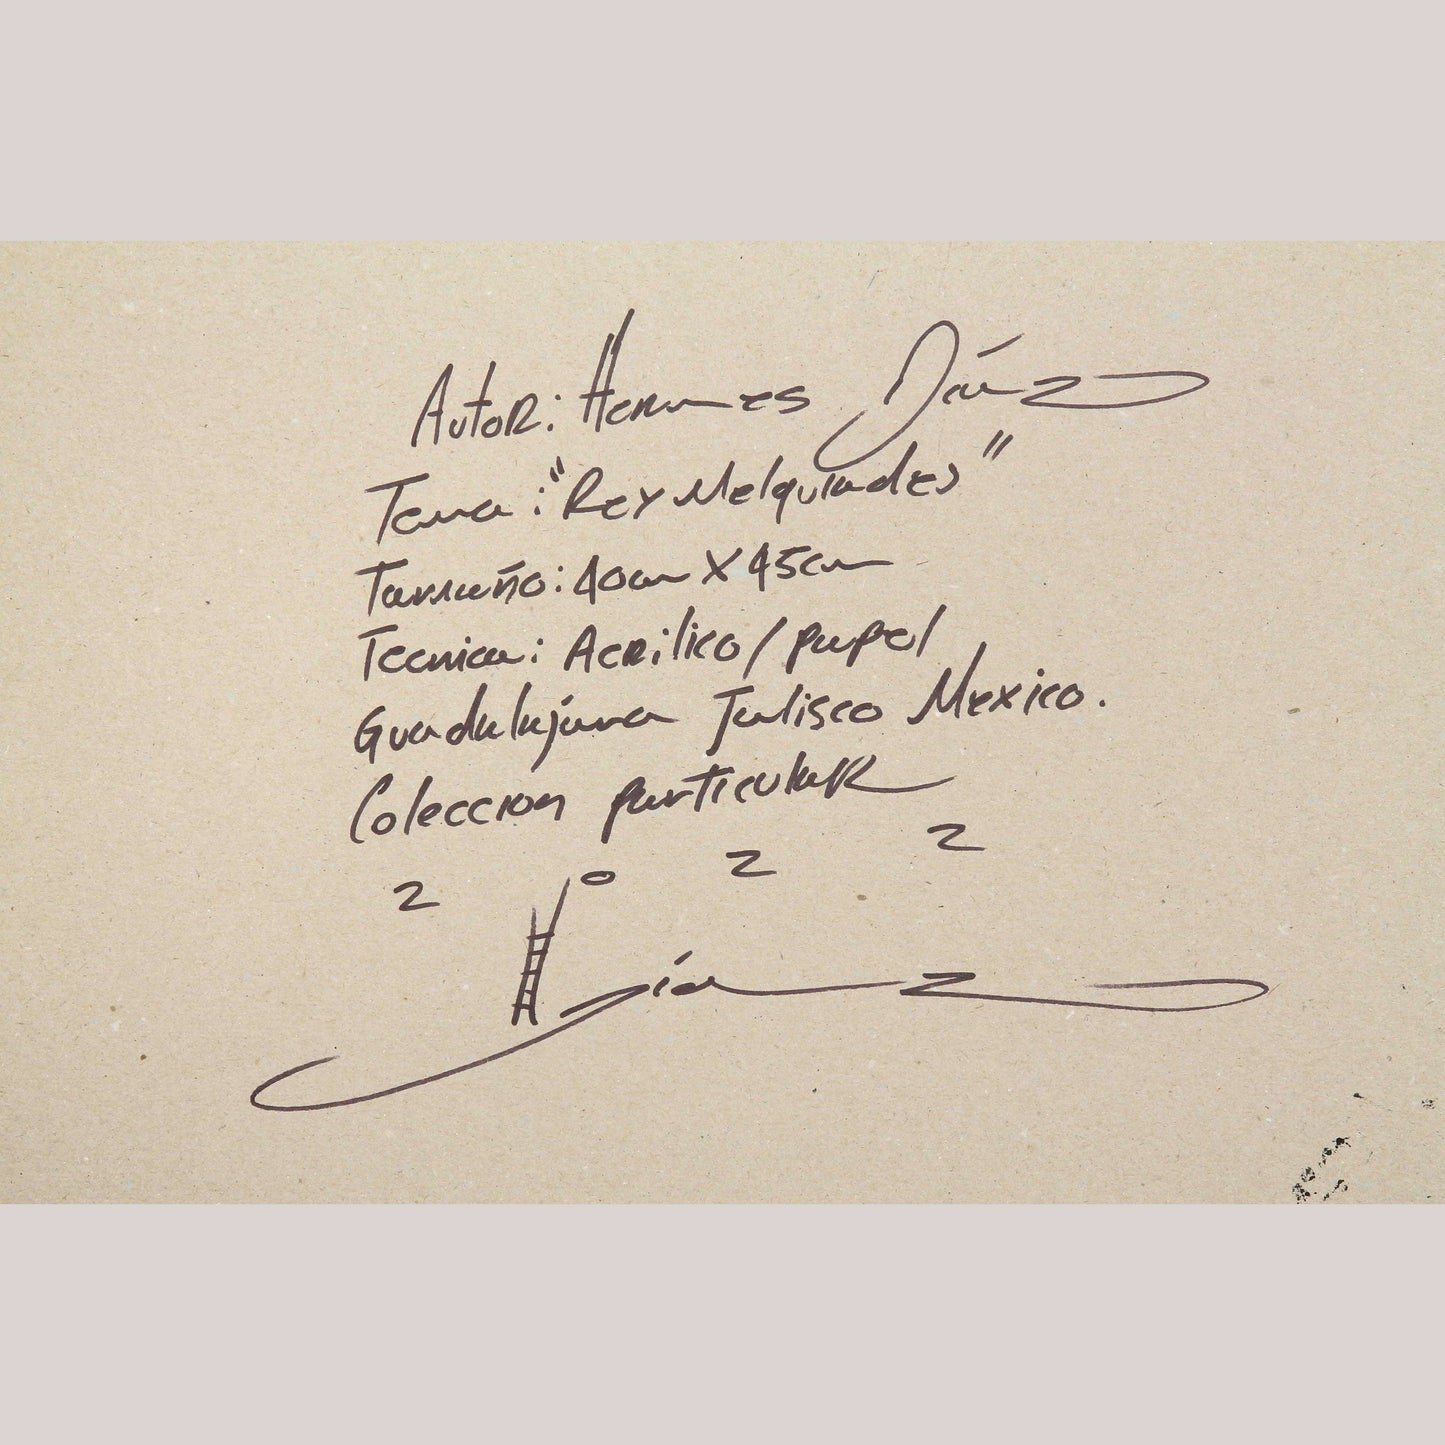 Autor: Hermes Díaz
Tema: "Rey Melquiades"
Tamaño: 40cm X 45cm
Tecnica: Acrilico/papel
Guadalajara Jalisco Mexico.
Coleccion particular
2 0 2 2
Díaz